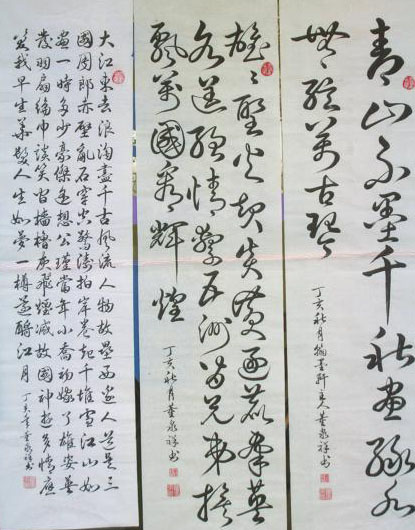 青山不墨千秋畫緑水
無絃萬古琴
丁亥秋月翰墨軒主人董永祥书
雄〻聖火炎黄
情擎五洲皆兄弟
飄萬國看輝煌
丁亥秋月董永祥书
大江東去浪淘盡千古風流人物故壘西邊人道是三
國周郎赤壁亂石穿空驚濤拍岸卷起千堆雪江山如
畫一時多少豪傑遥想公瑾當年小喬初嫁了雄姿英
發羽扇綸巾談笑間檣櫓灰飛煙滅故國神遊多情應
笑我早生華髮人生如夢一樽還酹江月
丁亥年董永祥书